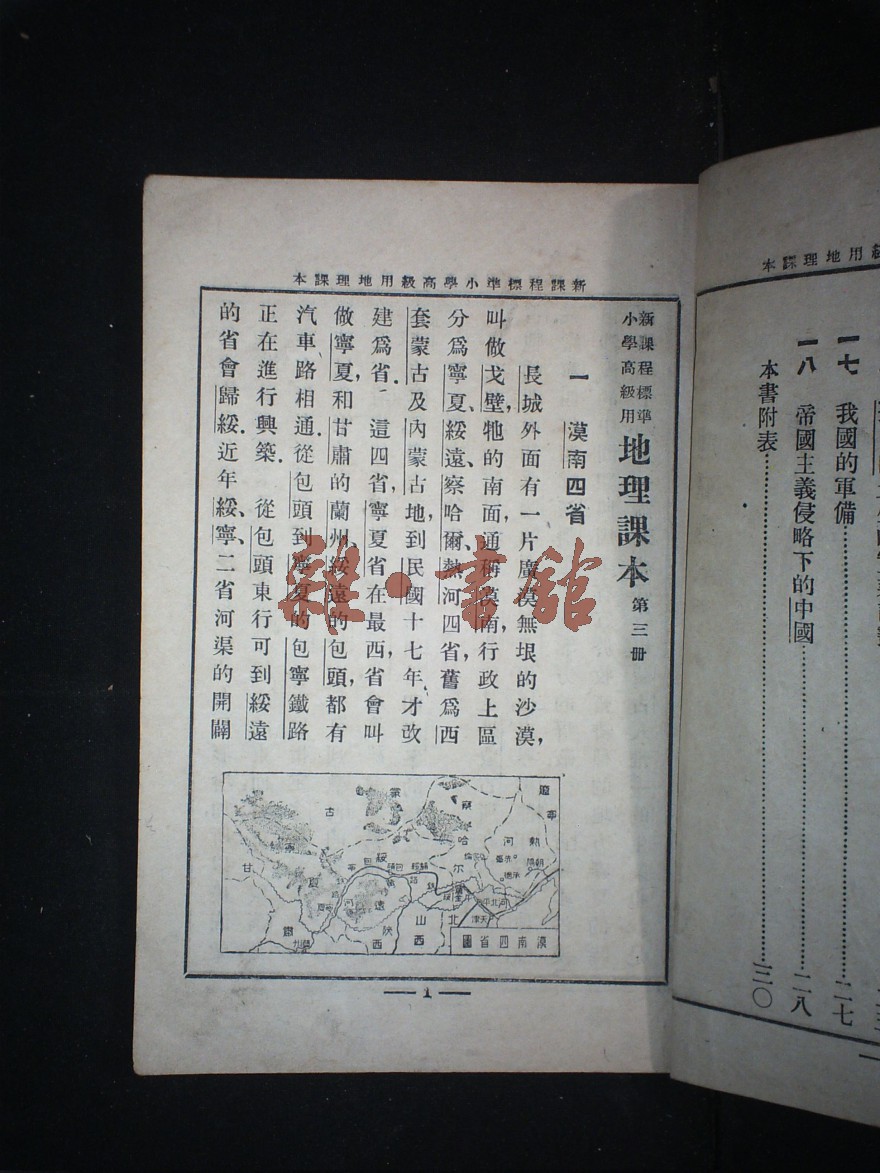 級用地理課本
一七 我國的軍備 二七
一八 帝國主義侵略下的中國 二八
本書附表 三〇
新課程標準小學高級用地理課本
新課程標準
小學高級用
地理課本 第三冊
一 漠南四省
長城外面有一片廣漠無垠的沙漠，
叫做戈壁，牠的南面，通稱漠南，行政上區
分爲寧夏、綏遠、察哈爾、熱河四省，舊爲西
套蒙古及內蒙古地，到民國十七年，才改
建爲省．這四省，寧夏省在最西，省會叫
做寧夏，和甘肅的蘭州、綏遠的包頭，都有
汽車路相通．從包頭到寧夏的包寧鐵路
正在進行興築．從包頭東行可到綏遠
的省會歸綏．近年綏、寧、二省河渠的開闢
蒙
古
察
哈
爾
熱
河
遼
寧
綏
遠
寧
夏
甘
肅
陝
西
山
西
北平
天津
漠南四省圖
1
雜·書館